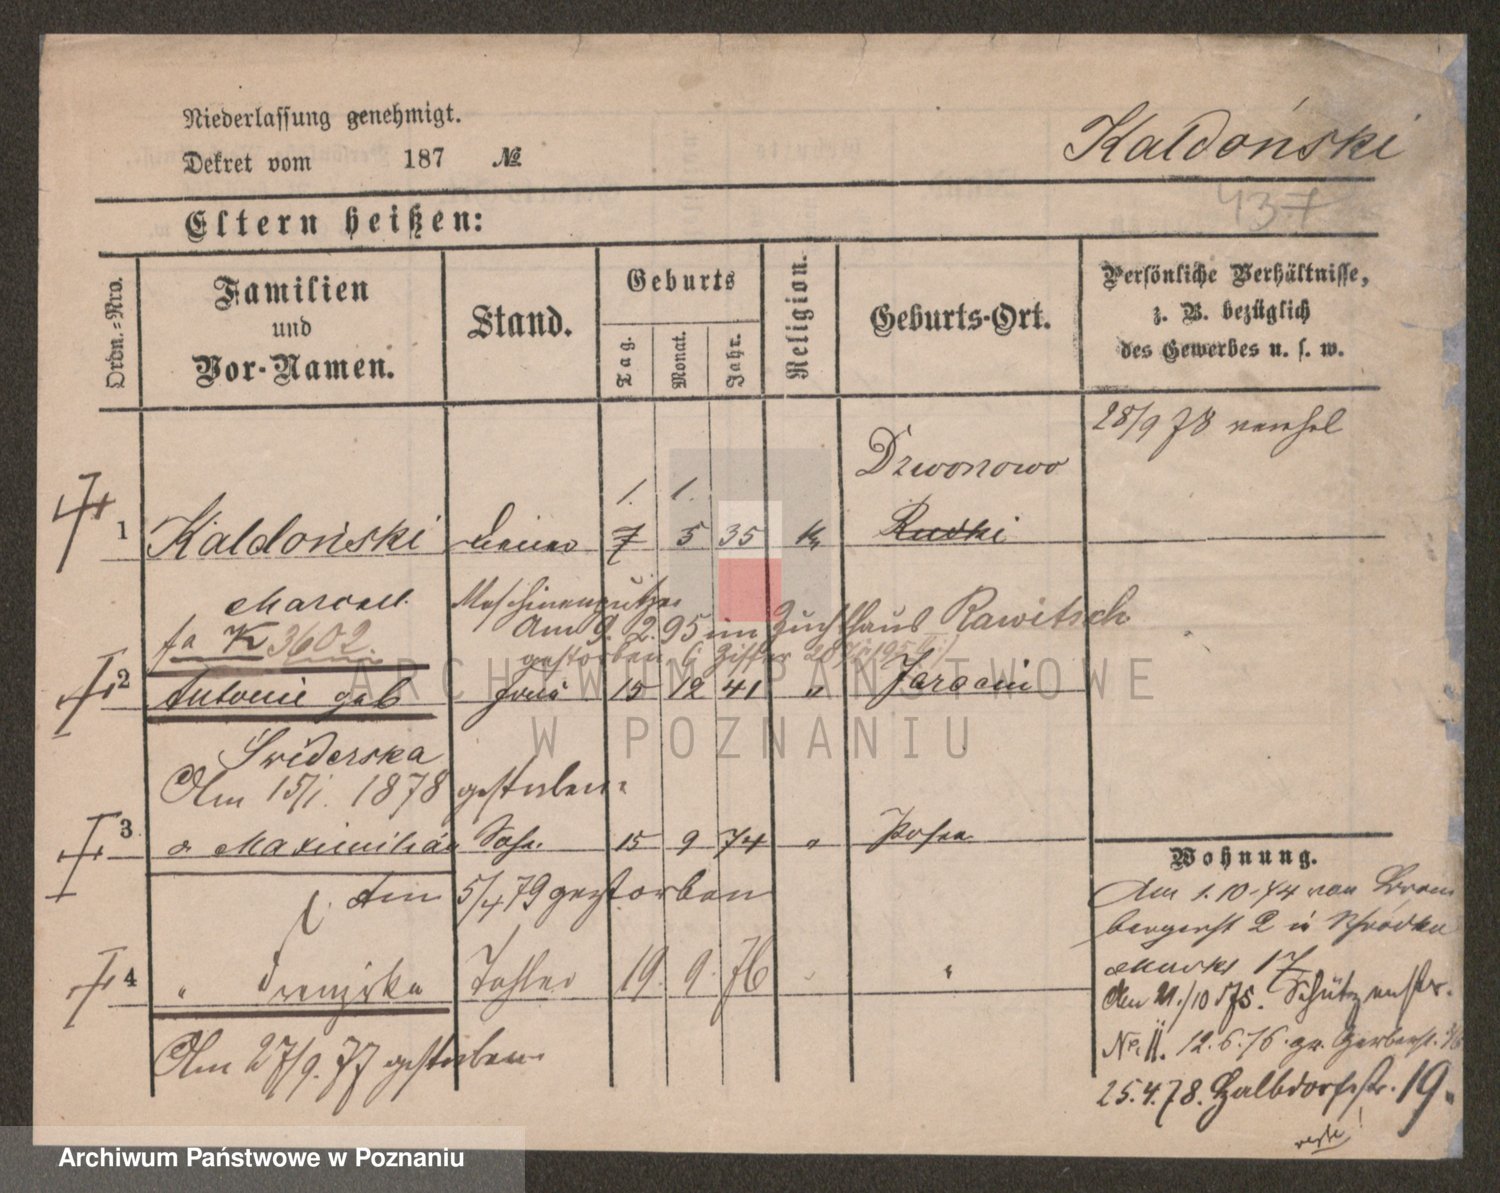 Niederlassung genehmigt.
Dekret vom 187 №
Kaldoński
437
Eltern heißen:
Ordn.-Nro.
Familien
und
Vor-Namen.
Stand.
Geburts
Tag.
Monat.
Jahr.
Religion.
Geburts-Ort.
Persönliche Verhältnisse,
z. B. bezüglich
des Gewerbes u. s. w.
28/9 78
Dzwonowo
1. 1.
1 Kaldoński 7 5 35 Rudki
Marcell. Maschinenputzer
Am 9. 2. 95 im Zuchthaus Rawitsch
fa K 3602.
gestorben
2 Antonie geb Frau 15 12 41 " Jaracni
Sviderska
Am 15/1. 1878 gestorben
3 Maximilian Sohn 15 9 74 " Posen
Am 5/4 79 gestorben
4 " Franziska Tochter 19. 9. 76 " "
Am 27/9. 77 gestorben
Wohnung.
Am 1. 10. 74 von Brom
bergerst 2 Schrodka
Markt 17
Am 21./10 75. Schützenstr.
No. 11. 12. 6. 76. gr. Gerberst.
25. 4. 78. Halbdorfstr. 19.
ARCHIWUM PAŃSTWOWE
W POZNANIU
Archiwum Państwowe w Poznaniu